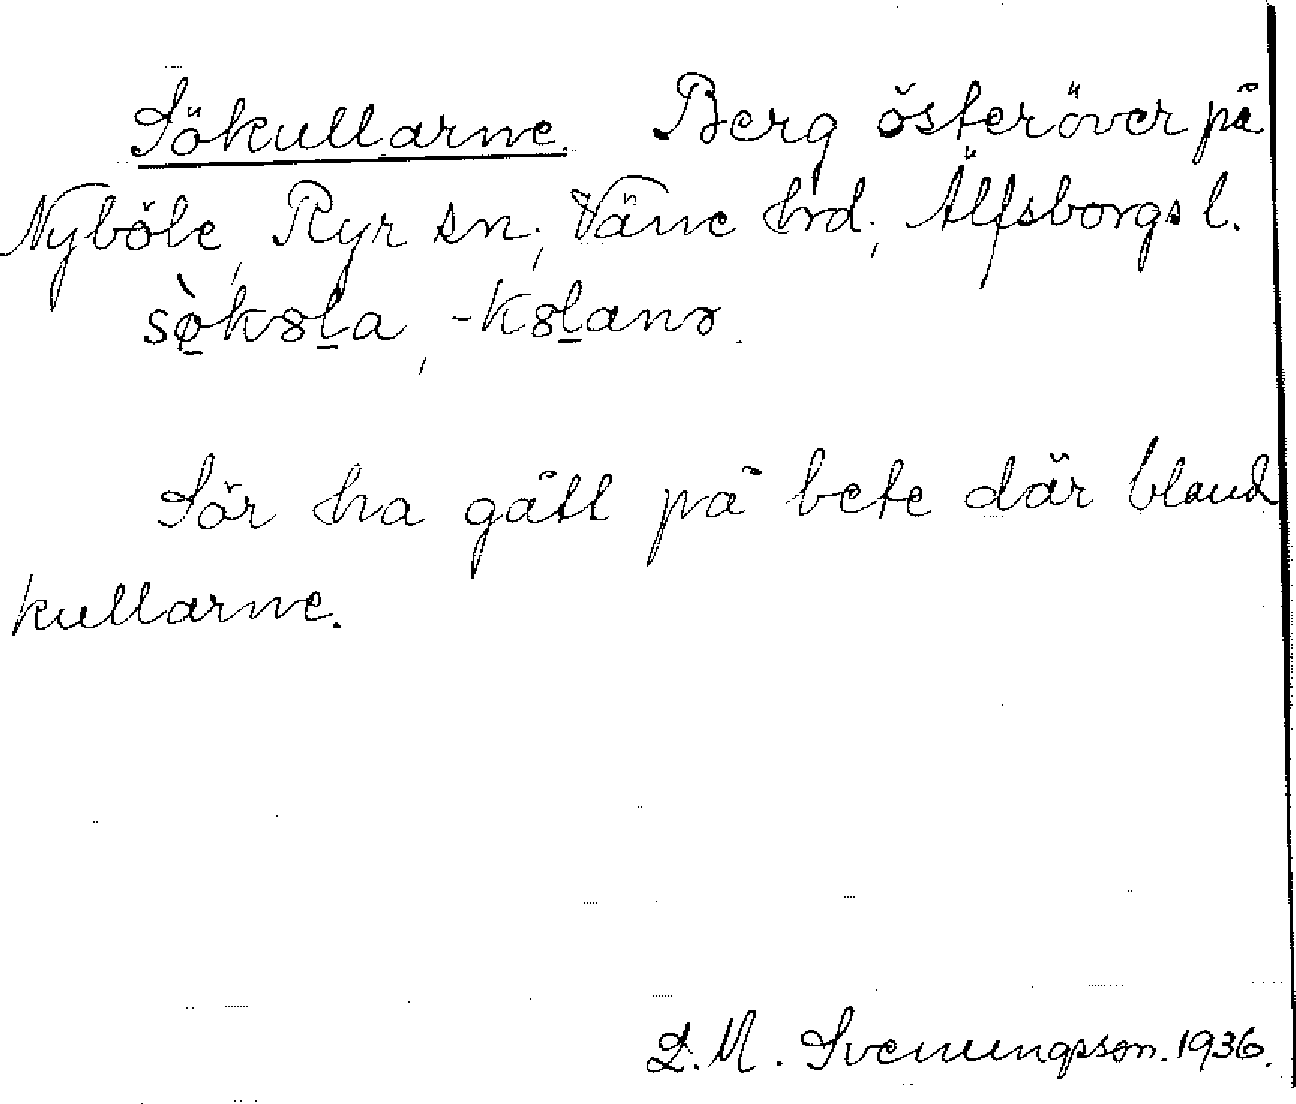 Sökullarne. Berg österöver på
Nyböle, Ryr sn; Väne hrd; Älfsborgs l.
sø̀k8l̠a, -k8l̠anɘ.
Sör ha gått på bete där bland
kullarne.
D. M. Svenungsson. 1936.